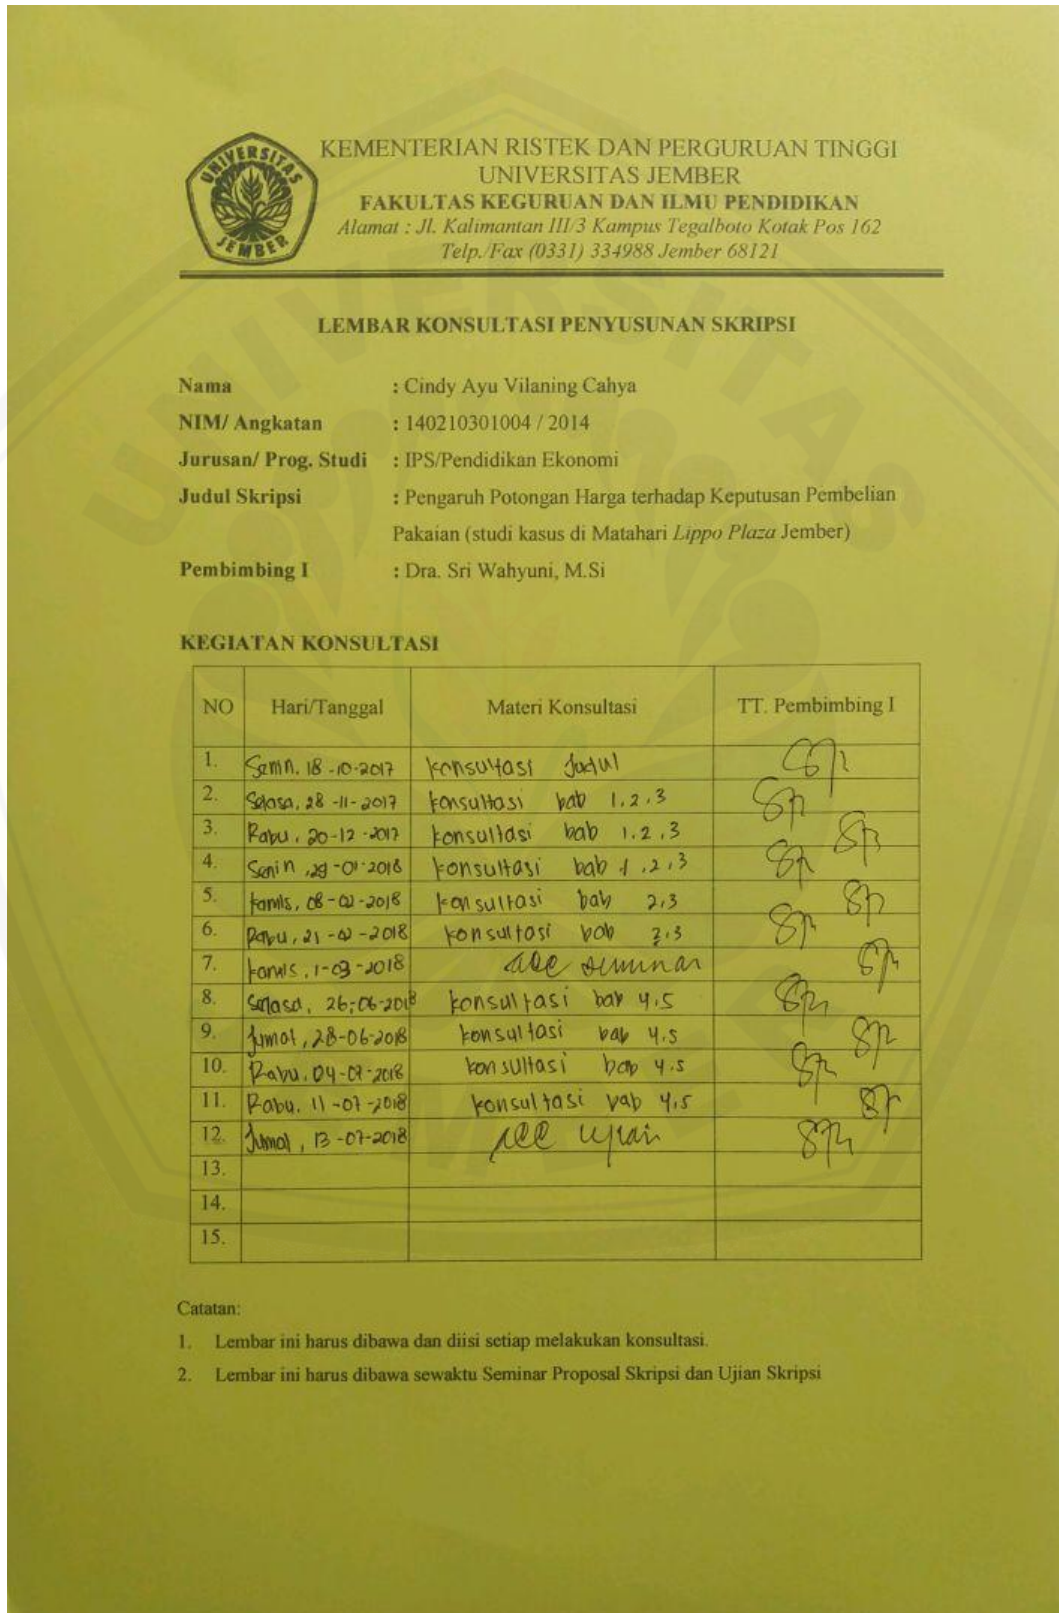 UNIVERSITAS
JEMBER
KEMENTERIAN RISTEK DAN PERGURUAN TINGGI
UNIVERSITAS JEMBER
FAKULTAS KEGURUAN DAN ILMU PENDIDIKAN
Alamat : Jl. Kalimantan III/3 Kampus Tegalboto Kotak Pos 162
Telp./Fax (0331) 334988 Jember 68121
LEMBAR KONSULTASI PENYUSUNAN SKRIPSI
Nama : Cindy Ayu Vilaning Cahya
NIM/ Angkatan : 140210301004 / 2014
Jurusan/ Prog. Studi : IPS/Pendidikan Ekonomi
Judul Skripsi : Pengaruh Potongan Harga terhadap Keputusan Pembelian
Pakaian (studi kasus di Matahari Lippo Plaza Jember)
Pembimbing I : Dra. Sri Wahyuni, M.Si
KEGIATAN KONSULTASI
NO Hari/Tanggal Materi Konsultasi TT. Pembimbing I
1. Senin, 18-10-2017 konsultasi Judul
2. Selasa, 28-11-2017 konsultasi bab 1,2,3
3. Rabu, 20-12-2017 konsultasi bab 1,2,3
4. Senin, 29-01-2018 konsultasi bab 1,2,3
5. kamis, 08-02-2018 konsultasi bab 2,3
6. Rabu, 21-02-2018 konsultasi bab 2,3
7. kamis, 1-03-2018 acc seminar
8. Selasa, 26-06-2018 konsultasi bab 4,5
9. Jumat, 28-06-2018 konsultasi bab 4,5
10. Rabu, 04-07-2018 konsultasi bab 4,5
11. Rabu, 11-07-2018 konsultasi bab 4,5
12. Jumat, 13-07-2018 acc ujian
13.
14.
15.
Catatan:
1. Lembar ini harus dibawa dan diisi setiap melakukan konsultasi.
2. Lembar ini harus dibawa sewaktu Seminar Proposal Skripsi dan Ujian Skripsi